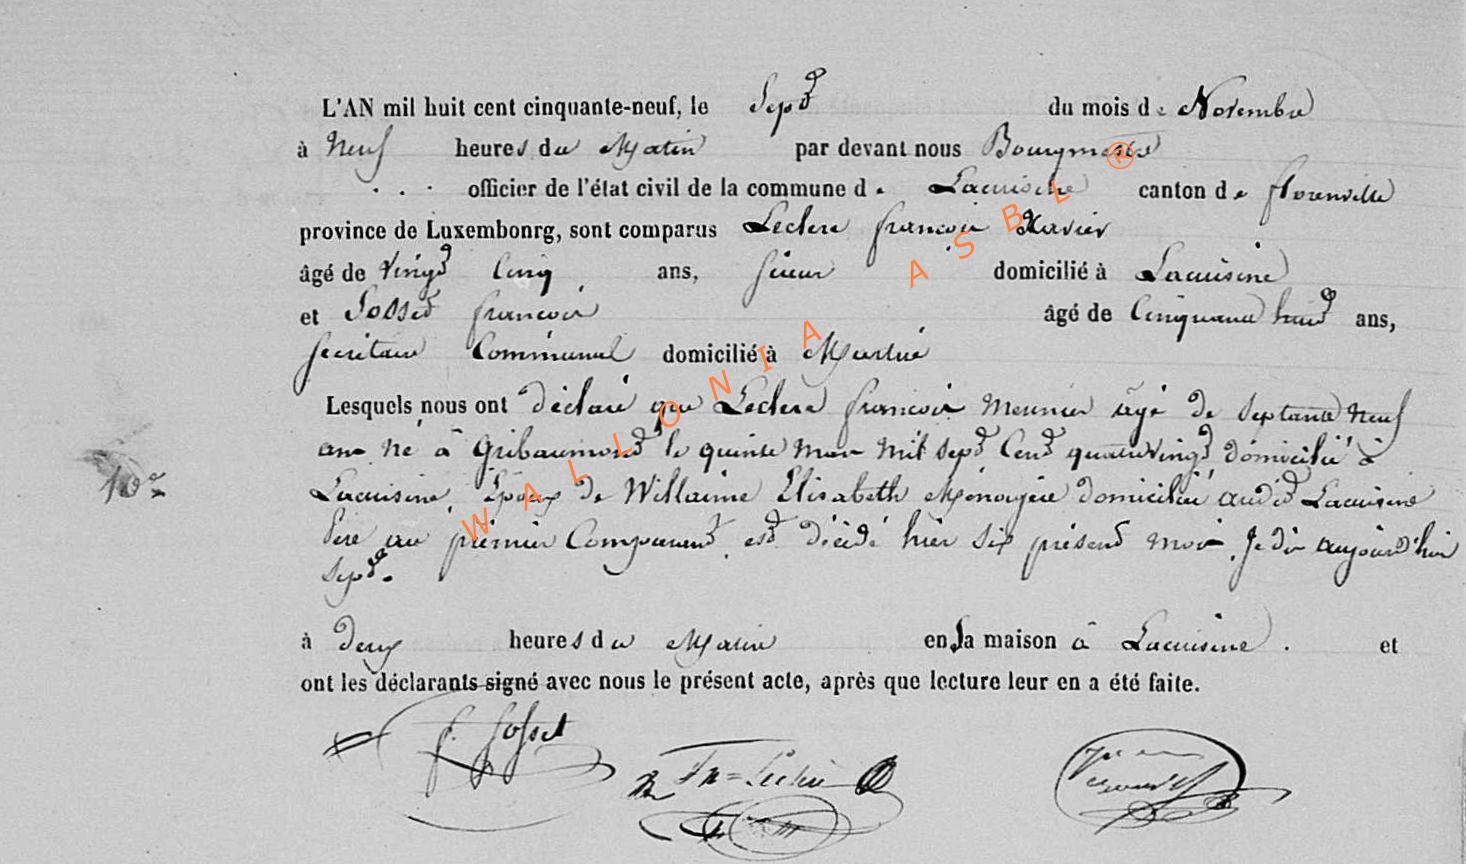 L'AN mil huit cent cinquante-neuf, le Sept du mois de Novembre
à Neuf heures du Matin par devant nous Bourgmestre
. . . officier de l'état civil de la commune de Lacuisine canton de florenville
province de Luxembonrg, sont comparus Leclere francois Xavier
âgé de Vingt Cinq ans, domicilié à Lacuisine
et Sosset francois âgé de Cinquante huit ans,
Secrétaire Communal domicilié à Martué
Lesquels nous ont déclaré que Leclere francois Meunier âgé de Septante Neuf
ans né à Gribaumont le quinze mars mil sept Cent quatrevingt domicilié à
Lacuisine Epoux de Willaime Elisabeth Ménagère domiciliée audit Lacuisine
Père au premier Comparant est décédé hier six présent mois. Je dis aujourd'hui
sept.
10e
à deux heures du Matin en sa maison à Lacuisine. et
ont les déclarants signé avec nous le présent acte, après que lecture leur en a été faite.
f. Sosset
Fx = Leclère
WALLONIA ASBL ®